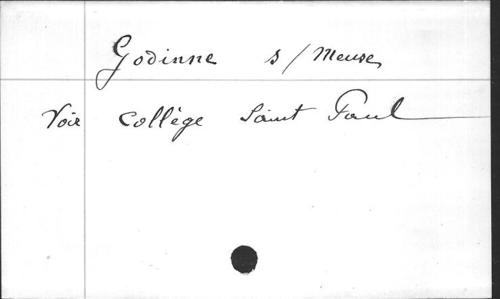 Godinne s/Meuse
Voir Collège Saint Paul